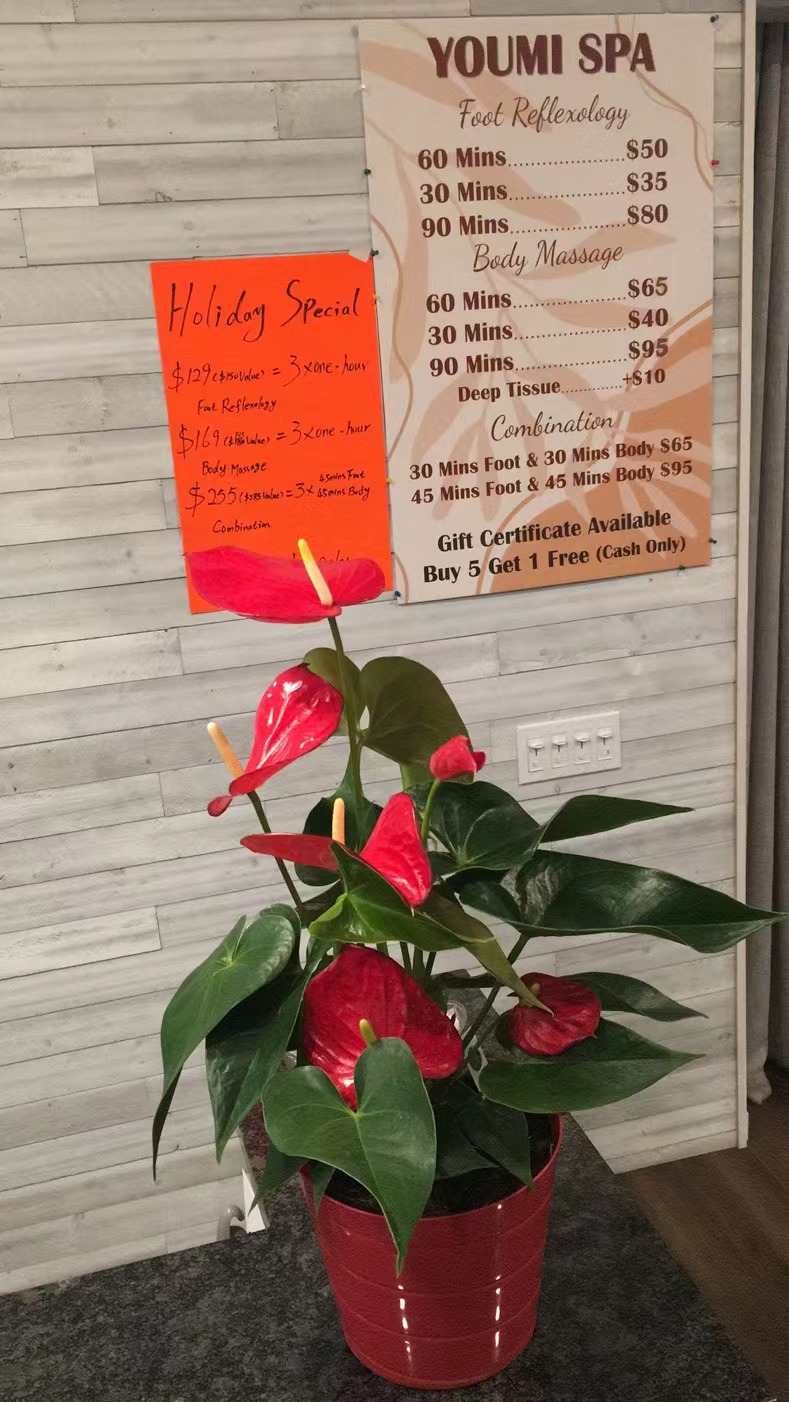 YOUMI SPA
Foot Reflexology
60 Mins....................$50
30 Mins....................$35
90 Mins....................$80
Body Massage
60 Mins....................$65
30 Mins....................$40
90 Mins....................$95
Deep Tissue............+$10
Combination
30 Mins Foot & 30 Mins Body $65
45 Mins Foot & 45 Mins Body $95
Gift Certificate Available
Buy 5 Get 1 Free (Cash Only)
Holiday Special
$129 ($150 Value) = 3 x one-hour
Foot Reflexology
$169 ( Value) = 3 x one-hour
Body Massage
$255 ($285 Value) = 3 x 45mins Foot
45mins Body
Combination